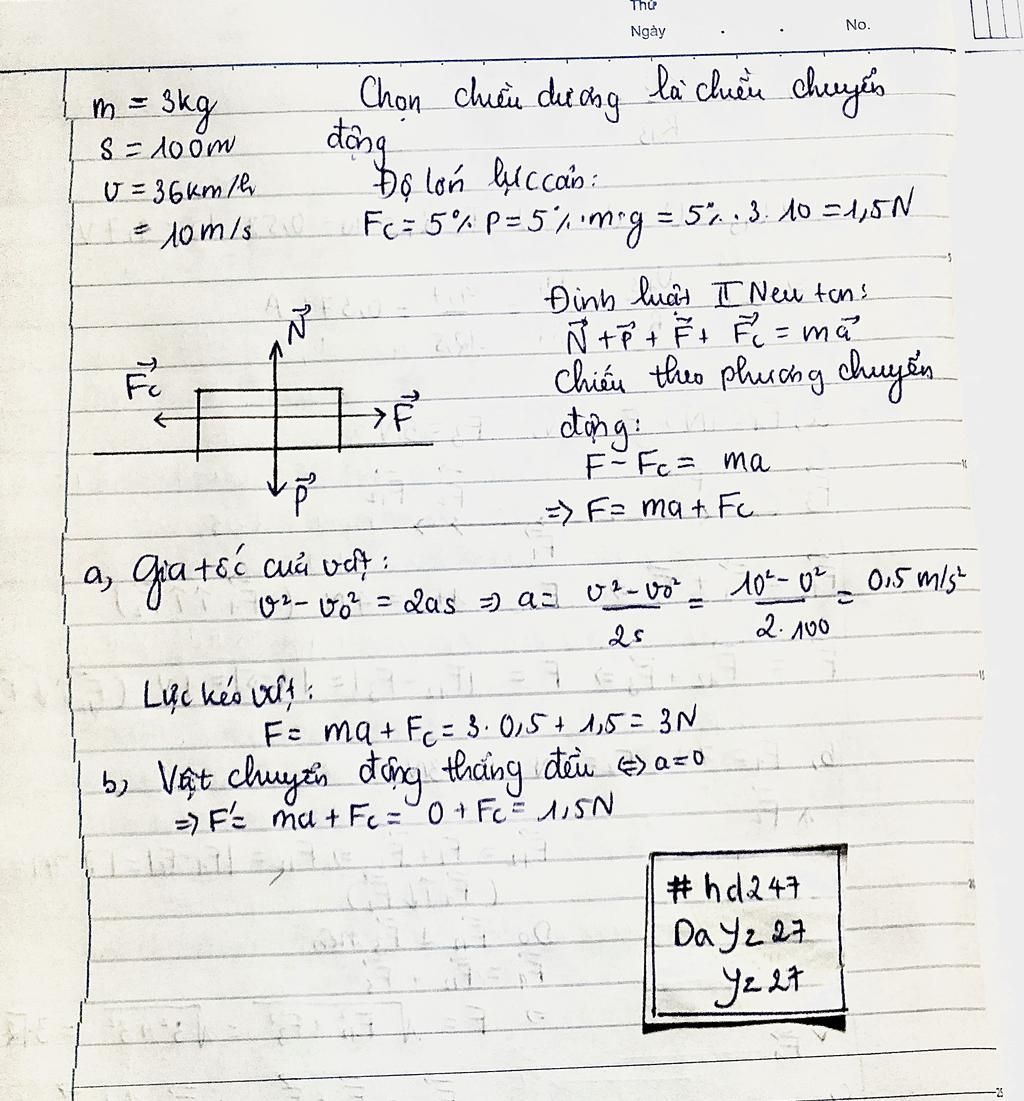 Thứ
Ngày . . No.
m = 3kg
s = 100m
v = 36km/h
= 10m/s
Chọn chiều dương là chiều chuyển
động
Độ lớn lực cản:
Fc = 5% P = 5% . m . g = 5% . 3 . 10 = 1,5N
N⃗
F⃗c
F⃗
P⃗
Định luật II Neu tơn:
N⃗ + P⃗ + F⃗ + F⃗c = ma⃗
Chiếu theo phương chuyển
động:
F - Fc = ma
=> F = ma + Fc
a, Gia tốc của vật:
v² - v₀² = 2as => a = (v² - v₀²)/2s = (10² - 0²)/2.100 = 0,5 m/s²
Lực kéo vật:
F = ma + Fc = 3 . 0,5 + 1,5 = 3N
b, Vật chuyển động thẳng đều <=> a = 0
=> F' = ma + Fc = 0 + Fc = 1,5N
#hd247
DaYz27
Yz27